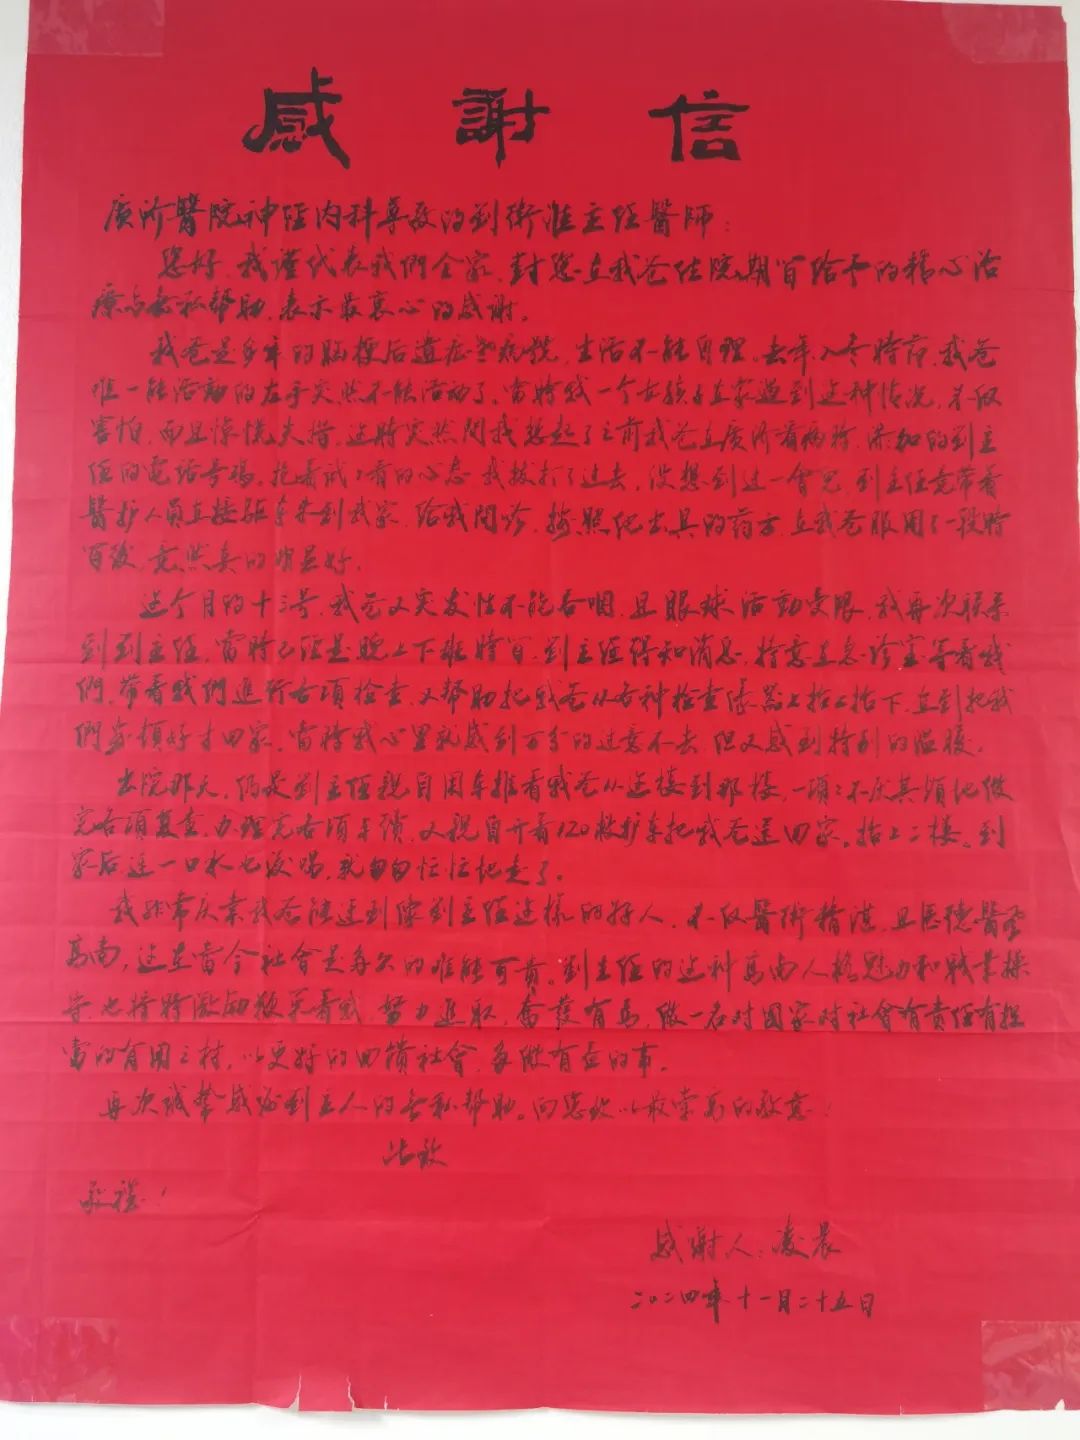 感謝信
廣济醫院神经内科尊敬的刘衛淮主任醫师:
您好,我谨代表我們全家,對您在我爸住院期间给予的精心治
療与無私帮助,表示最衷心的感谢。
我爸是多年的脑梗后遗症老病號,生活不能自理。去年入冬時节,我爸
唯一能活動的左手突然不能活动了。當時我一个女孩子在家遇到这种情况,不仅
害怕,而且惊慌失措,这時突然间我想起了之前我爸在廣济看病時,添加的刘主
任的電话号码。抱着试々看的心态我拨打了过去,没想到过一會児,刘主任竟带着
醫护人员直接驱车来到我家,给我问诊,按照他出具的药方,在我爸服用了一段時
间後,竟然真的明显好。
这个月的十三号,我爸又突发性不能吞咽,且眼球活動受限,我再次联系
到刘主任,當時已经是晚上下班時间,刘主任得知消息,特意在急诊室等着我
們,带着我們進行各項检查,又帮助把我爸从各种检查儀器上抬上抬下,直到把我
們安顿好才回家,當時我心里就感到万分的过意不去,但又感到特别的温暖。
出院那天,仍是刘主任親自用车推着我爸从这楼到那楼,一項々不厌其烦地做
完各項复查,办理完各項手续,又親自开着120救护车把我爸送回家。抬上二楼。到
家后連一口水也没喝,就匆匆忙忙地走了。
我非常庆幸我爸能遇到像刘主任这樣的好人,不仅醫術精湛,且医德醫風
高尚,这在當今社會是多么的难能可貴。刘主任的这种高尚人格魅力和职業操
守,也将時時激励鞭策着我,努力進取,奮發有為,做一名对國家对社會有責任有担
當的有用之材,以更好的回馈社會,多做有益的事。
再次诚摯感谢刘主人的無私帮助。向您致以最崇高的敬意!
此致
敬禮!
感谢人:凌晨
二〇二四年十一月二十五日